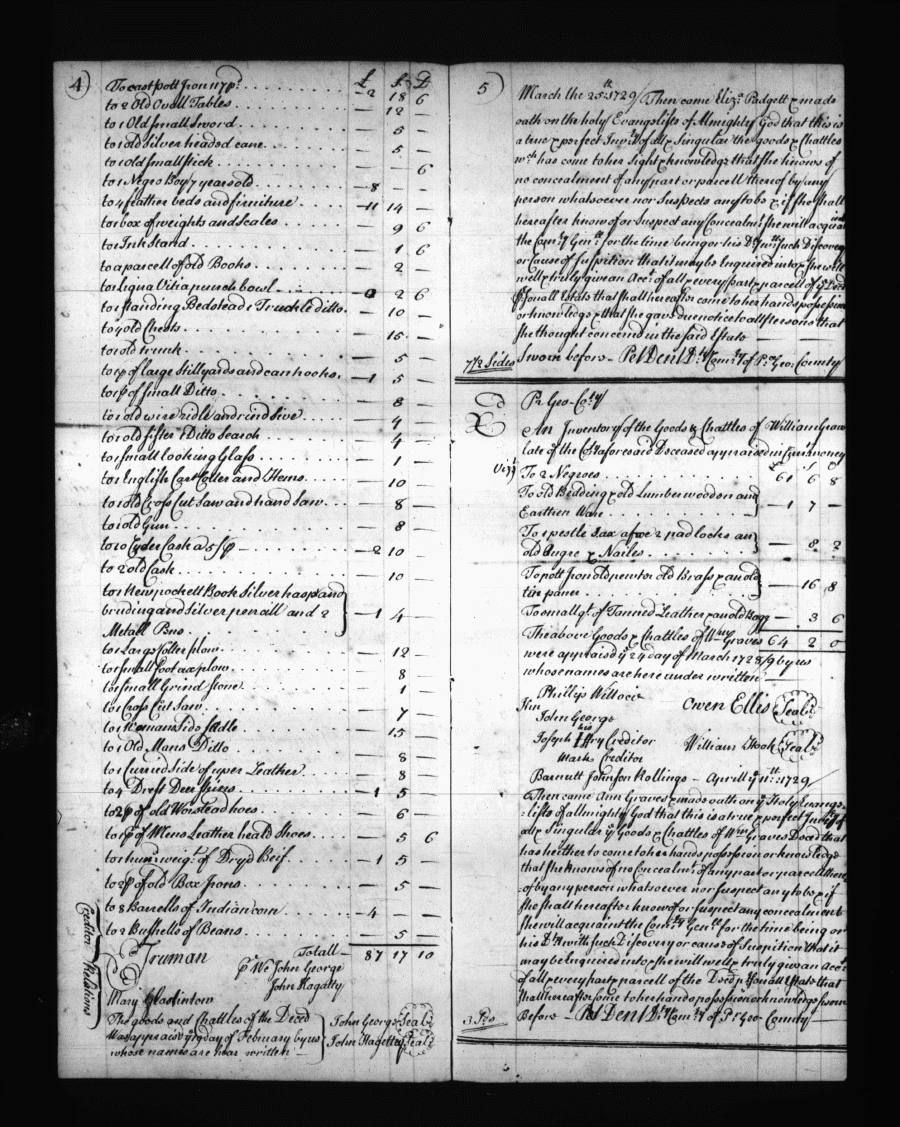 4)
£ S D
To cast pott Iron 117 p.d . . . — 2 18 6
to 2 Old Ovall Tables . . . 12 —
to 1 Old Small Sword . . . 5 —
to 1 old Silver headed cane . . . 5 —
to 1 old Small stick . . . — 6
to 1 Negro Boy 7 years old . . . — 8 — —
to 4 feather beds and firniture . . . — 11 14 —
to 1 box of weights and Scales . . . 9 6
to 1 Ink Stand . . . 1 6
to a parcell of old Books . . . 2 —
to Lignavitia punch bowl . . . — 0 2 6
to 1 standing Bedstead & Truckle ditto . 10 —
to 4 old Chests . . . 15 —
to 1 old trunk . . . 5 —
to 1 p.r of large Stillyards and can hooks . — 1 5 —
to 1 p.r of Small Ditto . . . 8 —
to 1 old wire ridle and rind Sive . . . 4 —
to 1 old sifter 1 Ditto Search . . . 4 —
to 1 Small looking Glass . . . 1 —
to 1 English Cart Coller and Hems . . . 10 —
to 1 old Cross Cut Saw and hand Saw . . . 8 —
to 1 old Gun . . . 8 —
to 10 Cyder Cask a 5/ p — . . . — 2 10 —
to 2 old Cask . . . 10 —
to 1 New pockett Book Silver hasp and
binding and Silver pencill and 2 . . . — 1 4 —
Metall Pens . . .
to 1 Large Colter plow . . . 12 —
to 1 Small foot ax plow . . . 8 —
to 1 Small Grind stone . . . 1 —
to 1 Cross Cut Saw . . . 7 —
to 1 Womans Side Sadle . . . 15 —
to 1 Old Mans Ditto . . . 8 —
to 1 Curried Side of uper Leather . . . 8 —
to 4 Drest Deer Skins . . . — 1 5 —
to 2 p.r of old Worstead hoes . . . 6 —
to 1 p.r of Mens Leather heald Shoes . . . 5 6
to 1 hun.d weig.t of Dry'd Beif . . . — 1 5 —
to 2 p.r of old Box Irons . . . 5 —
to 8 Barrells of Indian corn . . . — 4 — —
to 2 Bushells of Beans . . . 5 —
Totall — 87 17 10
Creditor Relations
Truman
p.r We John George
John Hagatty
Mary
The goods and Chattles of the Decd
Was apprais'd y.e 19 day of February by us
whose names are hear written —
John George Seal
John Hagetty Seal
5)
March the 25.th 1729/ Then came Eliz.a Padgett & made
oath on the holy Evangelists of Almighty God that this is
a true & perfect Inv.ry of all & Singular the goods & Chattles
w.ch has come to her Sight & knowledge that She knows of
no concealment of any part or parcell thereof by any
person whatsoever nor Suspects any to be & if She Shall
hereafter know of or Suspect any Concealm.t She will acquaint
the Com.ry Gen.ll for the time being or his D.ty w.th Such Discovery
or Cause of Suspition that it may be Enquired into & She will
well & truly give an Acc.t of all & every part & parcell of y.e Decd
p.rsonall Estate that Shall hereafter come to her hands possession
or knowledge & that She gave due notice to all persons that
She thought concernd in the Said Estate —
7 1/2 Sides
Sworn before — Pet Dent D.ty Com.ry of P.r Geo: County
P.r Geo — Co.ty
An Inventory of the Goods & Chattles of William Graves
late of the C.ty aforesaid Deceased appraised in money
Viz.t £ S D
To 2 Negroes . . . 61 6 8
To old Bedding & old Lumber wooden and
Earthen Ware . . . — 1 7 —
To 1 pestle 1 ax a 2 pad locks an
old Augre & Nailes . . . — 8 2
To pott Iron old pewter old Brass & an old
tin paner . . . — 16 8
To small q.ty of Tanned Leather & an old — 3 6
The above Goods & Chattles of W.m Graves 64 2 0
were appraisd y.e 24 day of March 1728/9 by us
whose names are here under written —
Phillip Willocie
Kin
John George
Owen Ellis Seal
his
Joseph I ffry Creditor
Mark Creditor
William Hook Seal
Barnutt Johnson Rollings — Aprill y.e 11.th 1729/
Then came Ann Graves & made oath on y.e Holy Evange-
lists of allmighty God that this is a true & perfect Inv.ry of
all & Singular y.e Goods & Chattles of W.m Graves Decd that
has heither to come to her hands possession or knowledge
that She knows of no Concealm.t of any part or parcell there
of by any person whatsoever nor Suspect any to be & if
She Shall hereafter know of or suspect any concealment
She will acquaint the Com.ry Gen.ll for the time being or
his D.ty with Such Discovery or cause of Suspition that it
may be enquired into & She will well & truly give an Acc.t
of all & every part & parcell of the Decd p.rsonall Estate that
Shall hereafter come to her hands possession or knowledge Sworn
3
Before — Pet Dent D.ty Com.ry of Pr Geo — County —